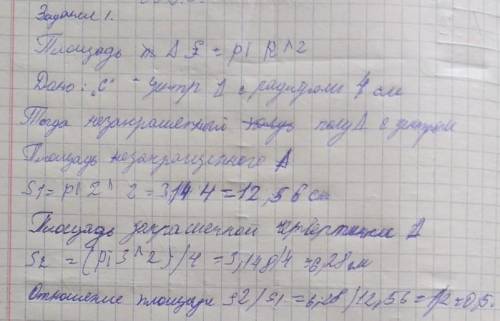 Задания 1.
Площадь Δ S = pi R^2
Дано: "С" - центр Δ с радиусом 4 см
Тогда незакрашенный полу Δ с центром
Площадь незакрашенного Δ
S1 = pi 2^2 = 3,14 4 = 12,56 см
Площадь закрашенной четвертинки Δ
S2 = (pi 3^2)/4 = 3,14 8/4 = 6,28 см
Отношение площади S2/S1 = 6,28/12,56 = 1/2 = 0,5.